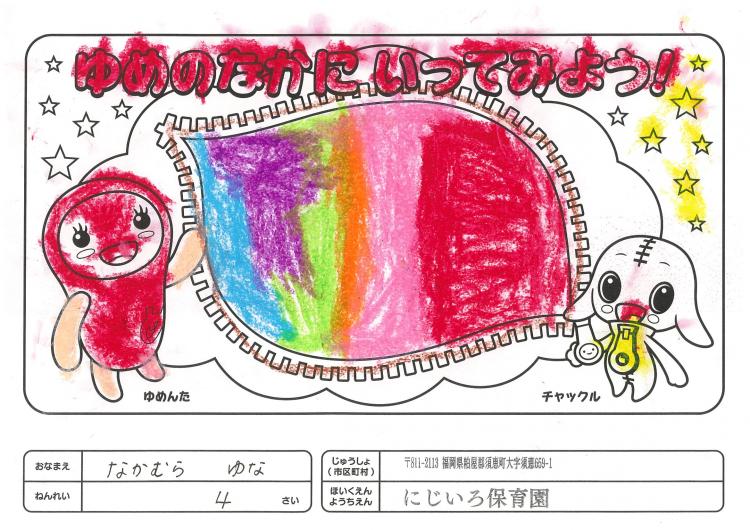 ゆめのなかに いってみよう!
ゆめんた
チャックル
おなまえ なかむら ゆな
ねんれい 4 さい
じゅうしょ(市区町村) 〒811-2113 福岡県粕屋郡須恵町大字須惠659-1
ほいくえん ようちえん にじいろ保育園